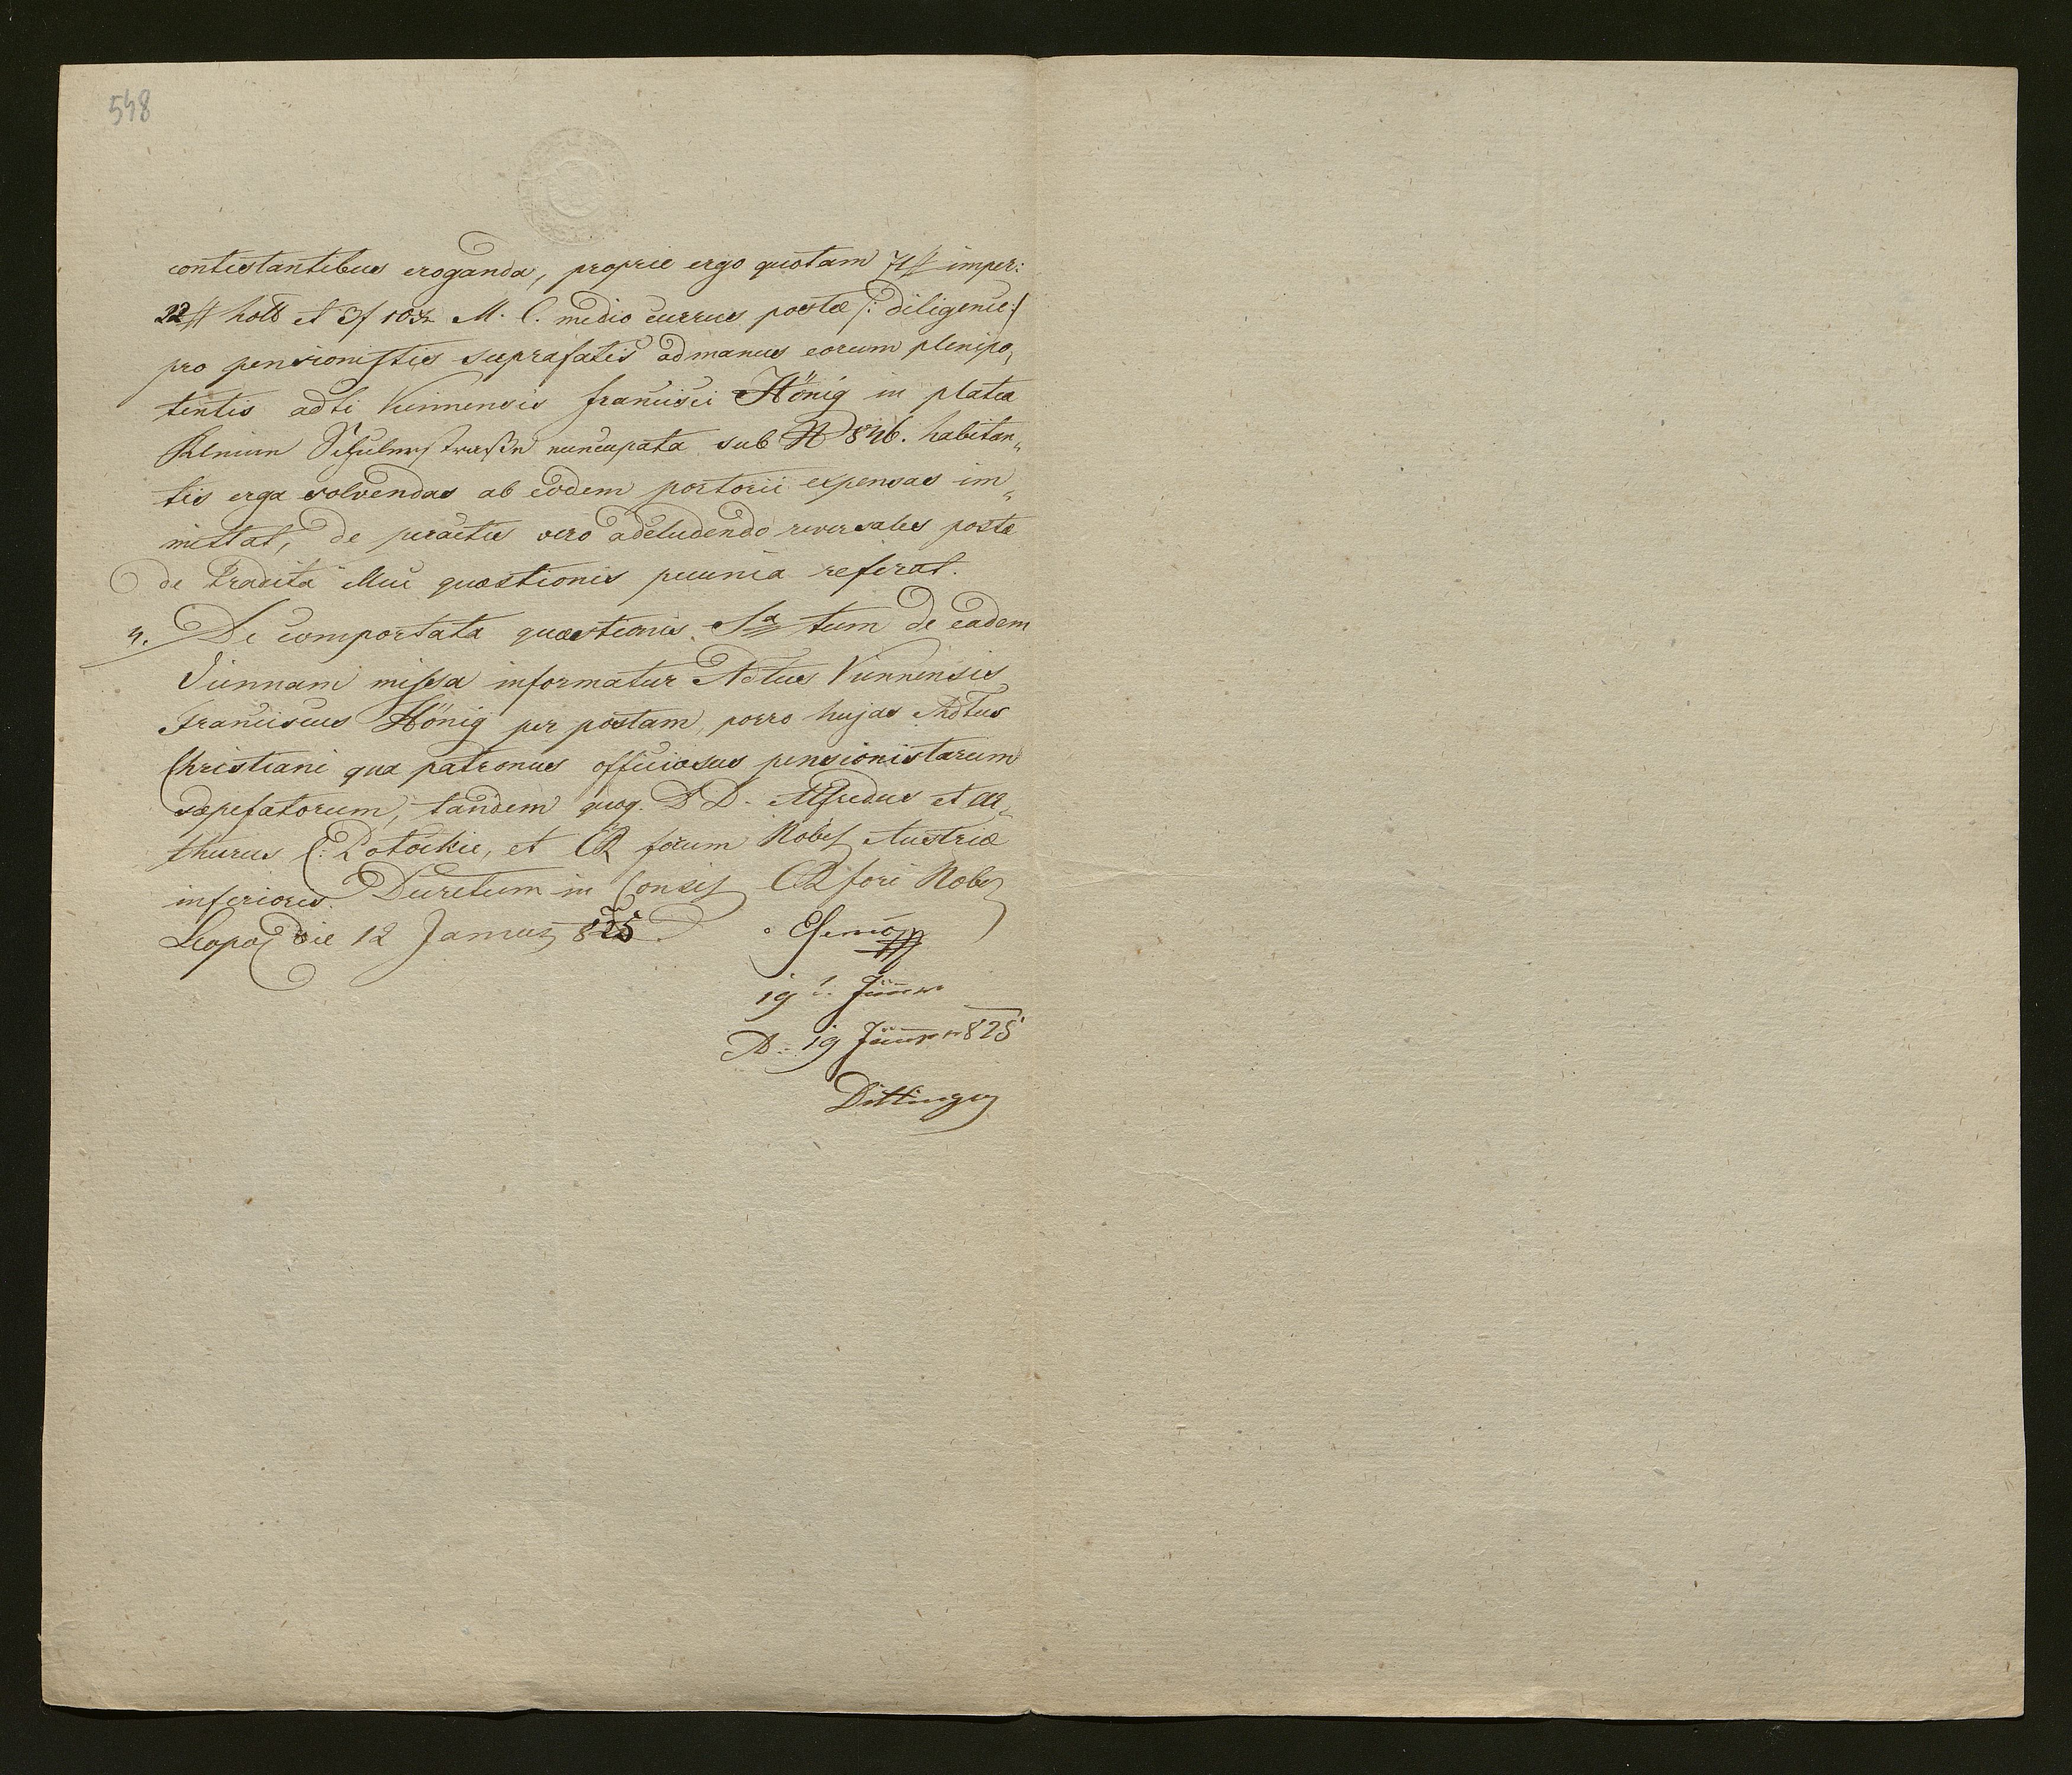 548
contestantibus eroganda, proprie ergo quotam 71# imper:
22# holl et 3f 10xr M. C. medio currus postæ /: diligence :/
pro pensionistis suprafatis ad manus eorum plenipo„
tentis adti Viennensis francisci Hönig in platea
Schulerstrasse nuncupata sub N 846. habitan„
tis erga solvendas ab eodem portorii expensas im„
mittat, de peractis vero adcludendo reversales postæ
de tradita illuc quæstionis pecunia referat.
4. De comportata quæstionis Sa tum de eadem
Viennam missa informatur Adtus Viennensis
Franciscus Hönig per postam, porro hujas Adtus
Christiani qua patronus officiosus pensionistarum
sæpefatorum, tandem quoq. D D. Alfredus et Ar„
thurus C. Potockie, et CR forum Nobil Austriæ
inferioris. Decretum in Consil CR fori Nobil
Leopol die 12 Januar 825.
19 Jänner
19 Jänner 825
Dittinger